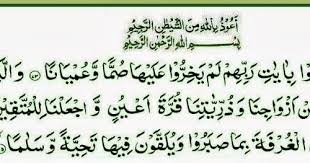 أَعُوذُ بِاللهِ مِنَ الشَّيْطٰنِ الرَّجِيْمِ
بِسْمِ اللهِ الرَّحْمٰنِ الرَّحِيْمِ
وْا بِاٰيٰتِ رَبِّهِمْ لَمْ يَخِرُّوْا عَلَيْهَا صُمًّا وَّعُمْيَانًا ﴿٧٣﴾
اَزْوَاجِنَا وَذُرِّيّٰتِنَا قُرَّةَ اَعْيُنٍ وَّاجْعَلْنَا لِلْمُتَّقِيْنَ
الْغُرْفَةَ بِمَا صَبَرُوْا وَيُلَقَّوْنَ فِيْهَا تَحِيَّةً وَّسَلٰمًا